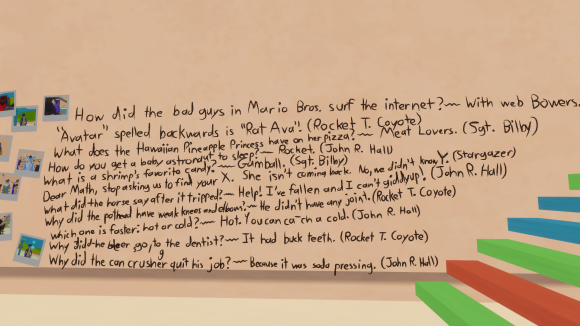 How did the bad guys in Mario Bros. surf the internet?~ With web Bowers.
"Avatar" spelled backwards is "Rat Ava". (Rocket T. Coyote)
What does the Hawaiian Pineapple Princess have on her pizza?~ Meat Lovers. (Sgt. Bilby)
How do you get a baby astronaut to sleep?~ Rocket. (John R. Hall)
What is a shrimp's favorite candy?~ Gumball. (Sgt. Bilby)
Dear Math, stop asking us to find your X. She isn't coming back. No, we didn't know Y. (Stargazer)
What did the horse say after it tripped?~ Help! I've fallen and I can't giddyup! (John R. Hall)
Why did the pothead have weak knees and elbows?~ He didn't have any joint. (Rocket T. Coyote)
which one is faster: hot or cold?~ Hot. You can catch a cold. (John R. Hall)
Why did the deer go to the dentist?~ It had buck teeth. (Rocket T. Coyote)
Why did the can crusher quit his job?~ Because it was soda pressing. (John R. Hall)